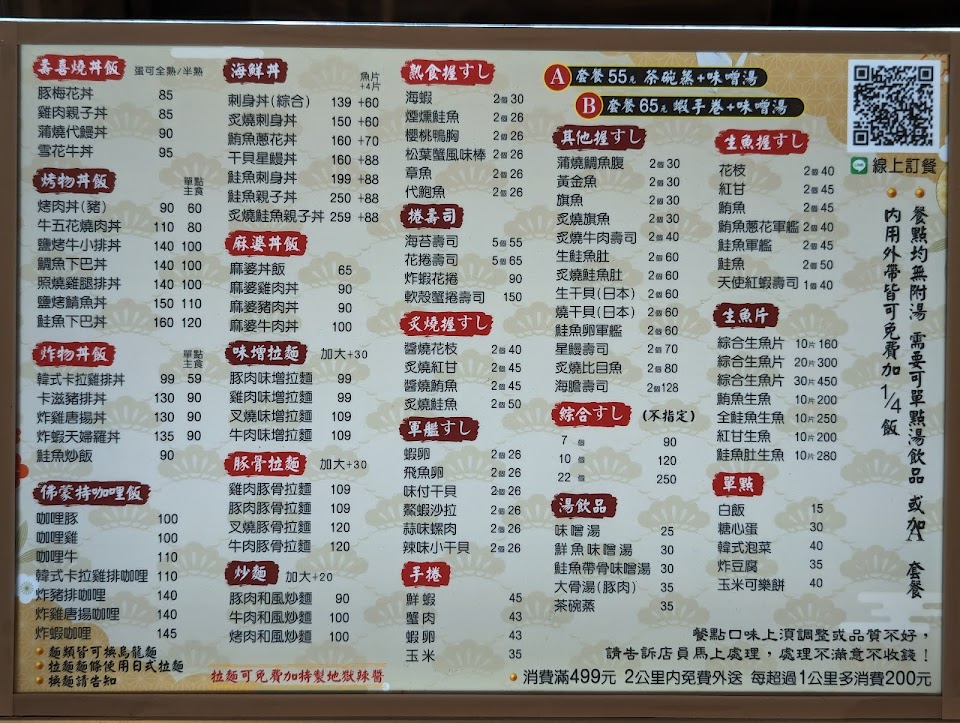 壽喜燒丼飯 蛋可全熟/半熟
豚梅花丼 85
雞肉親子丼 85
蒲燒代鰻丼 90
雪花牛丼 95
烤物丼飯 單點主食
烤肉丼(豬) 90 60
牛五花燒肉丼 110 80
鹽烤牛小排丼 140 100
鯛魚下巴丼 140 100
照燒雞腿排丼 140 100
鹽烤鯖魚丼 150 110
鮭魚下巴丼 160 120
炸物丼飯 單點主食
韓式卡拉雞排丼 99 59
卡滋豬排丼 130 90
炸雞唐揚丼 130 90
炸蝦天婦羅丼 135 90
鮭魚炒飯 90
佛蒙特咖哩飯
咖哩豚 100
咖哩雞 100
咖哩牛 110
韓式卡拉雞排咖哩 110
炸豬排咖哩 140
炸雞唐揚咖哩 140
炸蝦咖哩 145
麵類皆可換烏龍麵
拉麵麵條使用日式拉麵
換麵請告知
海鮮丼 魚片+4片
刺身丼(綜合) 139 +60
炙燒刺身丼 150 +60
鮪魚蔥花丼 160 +70
干貝星鰻丼 160 +88
鮭魚刺身丼 199 +88
鮭魚親子丼 250 +88
炙燒鮭魚親子丼 259 +88
麻婆丼飯
麻婆丼飯 65
麻婆雞肉丼 90
麻婆豬肉丼 90
麻婆牛肉丼 100
味增拉麵 加大+30
豚肉味增拉麵 99
雞肉味增拉麵 99
叉燒味增拉麵 109
牛肉味增拉麵 109
豚骨拉麵 加大+30
雞肉豚骨拉麵 109
豚肉豚骨拉麵 109
叉燒豚骨拉麵 120
牛肉豚骨拉麵 120
炒麵 加大+20
豚肉和風炒麵 90
牛肉和風炒麵 100
烤肉和風炒麵 100
拉麵可免費加特製地獄辣醬
熟食握すし
海蝦 2個 30
煙燻鮭魚 2個 26
櫻桃鴨胸 2個 26
松葉蟹風味棒 2個 26
章魚 2個 26
代鮑魚 2個 26
捲壽司
海苔壽司 5個 55
花捲壽司 5個 65
炸蝦花捲 90
軟殼蟹捲壽司 150
炙燒握すし
醬燒花枝 2個 40
炙燒紅甘 2個 45
醬燒鮪魚 2個 45
炙燒鮭魚 2個 50
軍艦すし
蝦卵 2個 26
飛魚卵 2個 26
味付干貝 2個 26
螯蝦沙拉 2個 26
蒜味螺肉 2個 26
辣味小干貝 2個 26
手捲
鮮蝦 45
蟹肉 43
蝦卵 43
玉米 35
A 套餐 55元 茶碗蒸+味噌湯
B 套餐 65元 蝦手卷+味噌湯
其他握すし
蒲燒鯛魚腹 2個 30
黃金魚 2個 30
旗魚 2個 30
炙燒旗魚 2個 30
炙燒牛肉壽司 2個 40
生鮭魚肚 2個 60
炙燒鮭魚肚 2個 60
生干貝(日本) 2個 60
燒干貝(日本) 2個 60
鮭魚卵軍艦 2個 60
星鰻壽司 2個 70
炙燒比目魚 2個 80
海膽壽司 2個 128
綜合すし (不指定)
7 個 90
10 個 120
22 個 250
湯飲品
味噌湯 25
鮮魚味噌湯 30
鮭魚帶骨味噌湯 30
大骨湯(豚肉) 35
茶碗蒸 35
生魚握すし
花枝 2個 40
紅甘 2個 45
鮪魚 2個 45
鮪魚蔥花軍艦 2個 40
鮭魚軍艦 2個 45
鮭魚 2個 50
天使紅蝦壽司 1個 40
生魚片
綜合生魚片 10片 160
綜合生魚片 20片 300
綜合生魚片 30片 450
鮪魚生魚 10片 200
全鮭魚生魚 10片 250
紅甘生魚 10片 200
鮭魚肚生魚 10片 280
單點
白飯 15
糖心蛋 30
韓式泡菜 40
炸豆腐 35
玉米可樂餅 40
LINE 線上訂餐
餐點均無附湯 需要可單點湯飲品 或加A套餐
內用外帶皆可免費加1/4飯
餐點口味上須調整或品質不好，
請告訴店員馬上處理，處理不滿意不收錢！
消費滿499元 2公里內免費外送 每超過1公里多消費200元